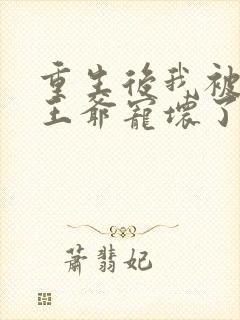 重生後我被
王爺寵壞了
蕭翡妃